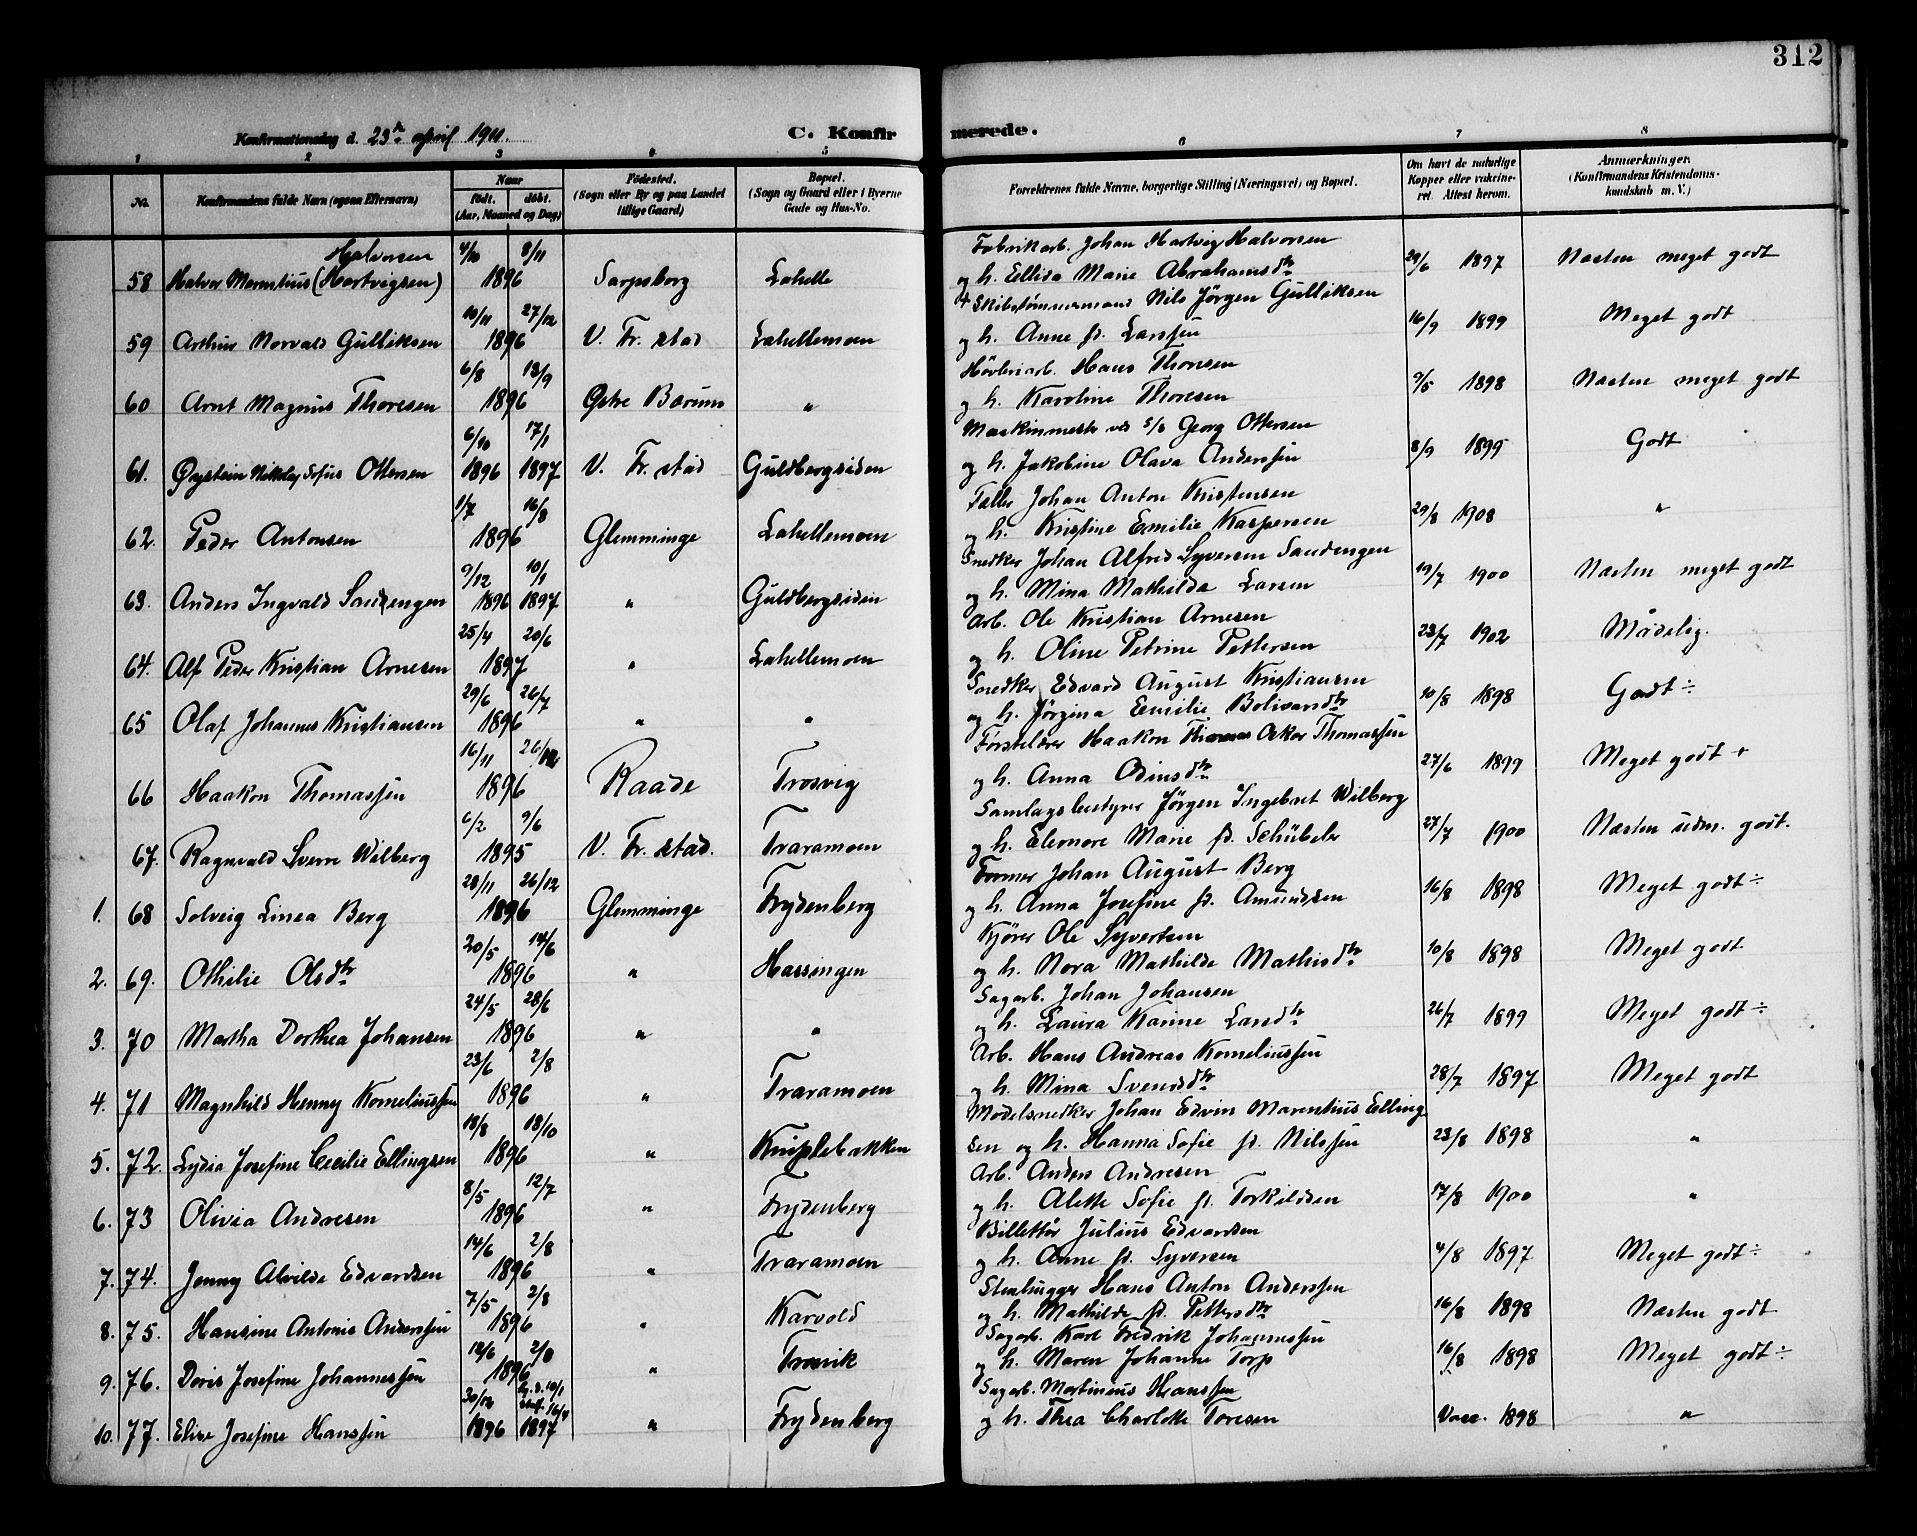 312
Konfirmationsdag d. 23de april 1911.
C. Konfirmerede.
1 2 3 4 5 6 7 8
No.
Konfirmandens fulde Navn (ogsaa Efternavn)
Naar
født. døbt.
(Aar, Maaned og Dag)
Fødested.
(Sogn eller By og paa Landet
tillige Gaard)
Bopæl.
(Sogn og Gaard eller i Byerne
Gade og Hus-No.
Forældrenes fulde Navne, borgerlige Stilling (Næringsvei) og Bopæl.
Om havt de naturlige
Kopper eller vakcine-
ret. Attest herom.
Anmærkninger.
(Konfirmandens Kristendoms-
kundskab m. V.)
Halvorsen 4/10 8/11 Fabrikarb. Johan Hartvig Halvorsen
58 Halvor Marentius (Hartvigsen) 1896 Sarpsborg Lahelle og h. Ellida Marie Abrahamsdtr 29/6 1897 Næsten meget godt
10/11 27/12 + Skibstømmermand Nils Jørgen Gulliksen
59 Arthur Norvald Gulliksen 1896 V. Fr. stad Lahellemoen og h. Anne f. Larssen 16/9 1899 Meget godt
6/8 13/9 Høvleriarb. Hans Thoresen
60 Arnt Magnus Thoresen 1896 Østre Bærum " og h. Karoline Thoresen 9/5 1898 Næsten meget godt
6/10 17/1 Maskinmester ved S/S Georg Ottersen
61. Øystein Nikolay Sofus Ottersen 1896 1897 V. Fr. stad Guldbergsiden og h. Jakobine Olava Anderssen 8/9 1899 Godt
1/7 16/8 Tæller Johan Anton Kristensen
62. Peder Antonsen 1896 Glemminge Lahellemoen og h. Kristine Emilie Kaspersen 29/8 1908 "
9/12 10/1 Snedker Johan Alfred Syversen Sandengen
63. Anders Ingvald Sandengen 1896 1897 " Guldbergsiden og h. Mina Mathilde Larsen 19/7 1900 Næsten meget godt
25/4 20/6 Arb. Ole Kristian Arnesen
64. Alf Peder Kristian Arnesen 1897 " Lahellemoen og h. Oline Petrine Pettersen 23/7 1902 Mådelig.
29/6 26/7 Snedker Edvard August Kristiansen
65 Olaf Johannes Kristiansen 1896 " " og h. Jørgina Emilie Bolivarsdtr 10/8 1898 Godt ÷
16/11 26/12 Haakon Oskar Thomassen
66 Haakon Thomassen 1896 Raade Trosvig og h. Anna Odinsdtr 27/6 1899 Meget godt +
6/2 9/6 Samlagsbestyrer Jørgen Ingebret Wilberg
67. Ragnvald Sverre Wilberg 1895 V. Fr. stad. Traramoen og h. Eleonore Marie f. Schübeler 27/7 1900 Næsten udm. godt.
28/11 26/12 Former Johan August Berg
1. 68 Solveig Linea Berg 1896 Glemminge Frydenberg og h. Anna Josefine f. Amundsen 16/8 1898 Meget godt ÷
20/5 14/6 Kjører Ole Syvertsen
2. 69. Othilie Olsdtr 1896 " Hassingen og h. Nora Mathilde Mathisdtr 10/8 1898 Meget godt
24/5 28/6 Sagarb. Johan Johansen
3. 70 Martha Dorthea Johansen 1896 " " og h. Laura Karine Larsdtr 26/7 1899 Meget godt ÷
23/6 2/8 Arb. Hans Andreas Korneliussen
4. 71 Magnhild Henny Korneliussen 1896 " Traramoen og h. Mina Svendsdtr 28/7 1897 Meget godt
18/8 18/10 Modelsnedker Johan Edvin Marentius Elling-
5. 72. Lydia Josefine Cecilie Ellingsen 1896 " Kniplebakken sen og h. Hanna Sofie f. Nilssen 23/8 1898 "
8/5 12/7 Arb. Anders Andresen
6. 73 Olivia Andresen 1896 " Frydenberg og h. Alette Sofie f. Torkildsen 17/8 1900 "
14/6 2/8 Billettør Julius Edvardsen
7. 74. Jenny Alvilde Edvardsen 1896 " Traramoen og h. Anne f. Syversen 4/8 1897 Meget godt ÷
7/5 2/8 Stenhugger Hans Anton Anderssen
8. 75. Hansine Antonie Anderssen 1896 " Karvold og h. Mathilde f. Pettersdtr 16/8 1898 Næsten godt
18/6 2/8 Sagarb. Karl Fredrik Johannessen
9. 76. Doris Josefine Johannessen 1896 " Trosvik og h. Maren Johanne Torp 16/8 1898 Meget godt ÷
30/12 Sagarb. Martinius Hanssen
10. 77. Elise Josefine Hanssen 1896 1897 " Frydenberg og h. Thea Charlotte Toresen Vacc. 1898 "